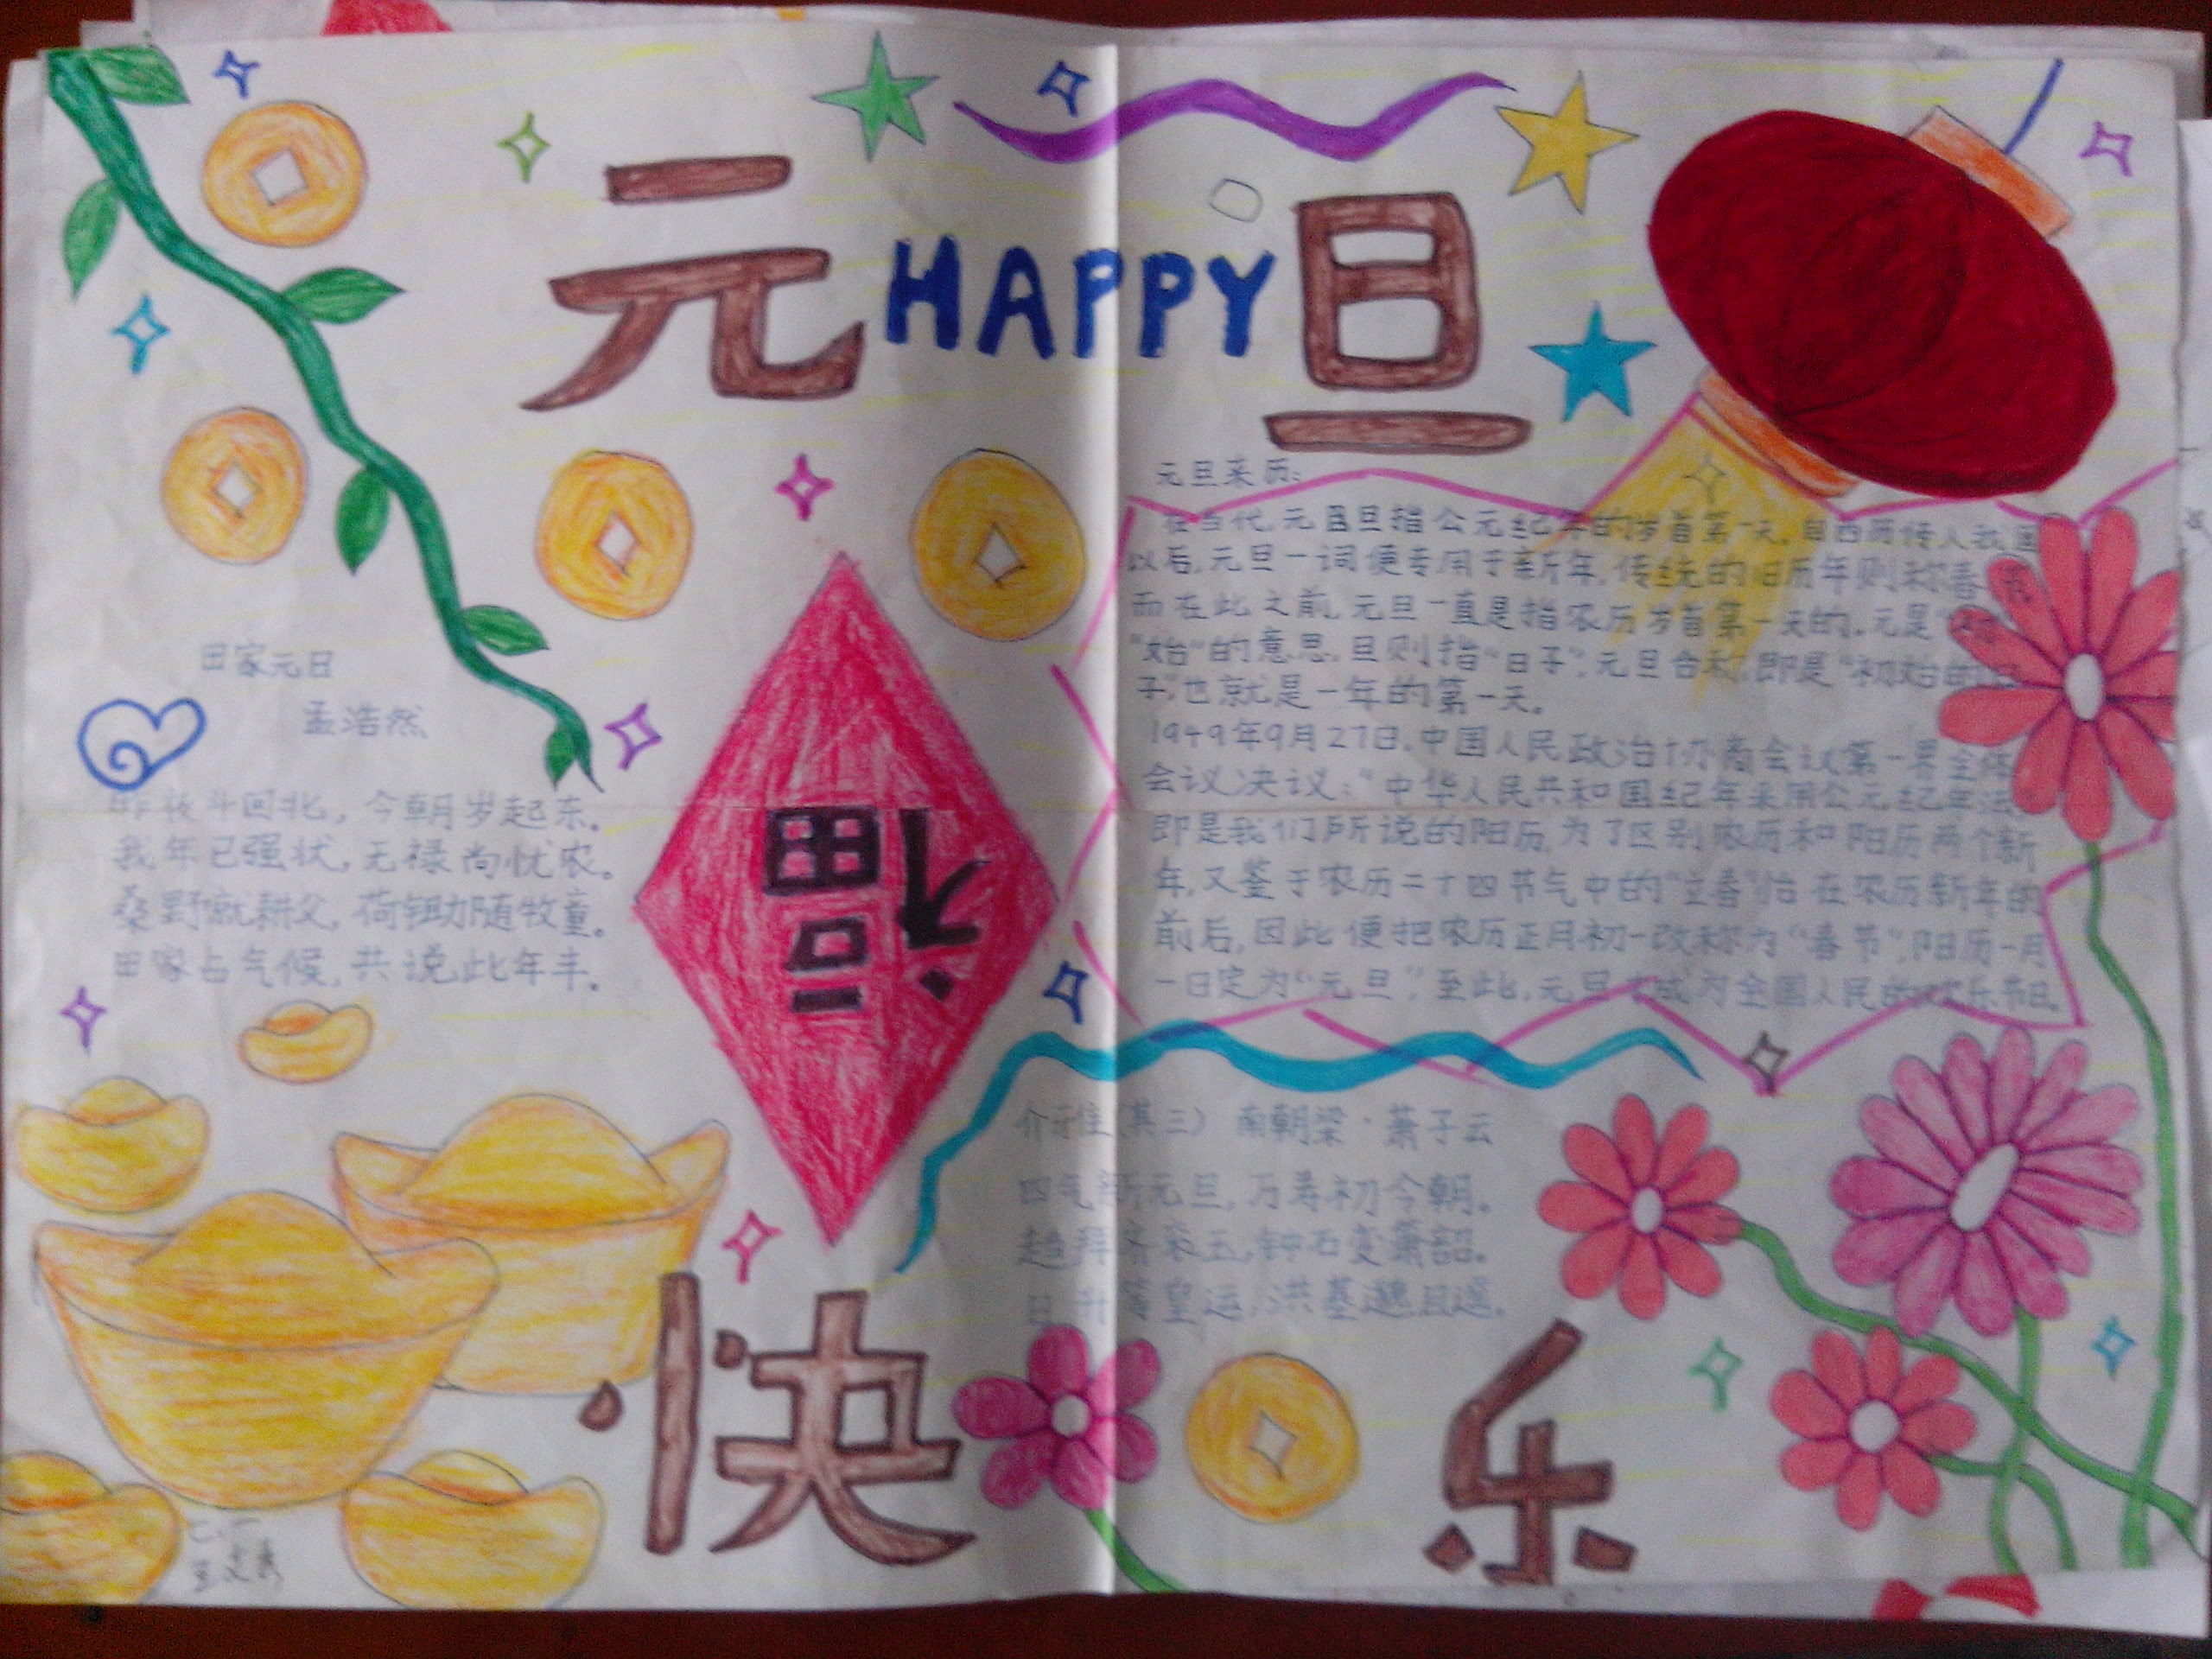 元 HAPPY 旦
田家元日
孟浩然
昨夜斗回北，今朝岁起东。
我年已强壮，无禄尚忧农。
桑野就耕父，荷锄随牧童。
田家占气候，共说此年丰。
福
元旦来历：
在当代，元旦旦指公元纪年的岁首第一天。自西历传人我国
以后，元旦一词便专用于新年，传统的旧历年则称春节
而在此之前，元旦一直是指农历岁首第一天的。元是"
"始"的意思，旦则指"日子"，元旦合称，即是"初始的日
子"，也就是一年的第一天。
1949年9月27日，中国人民政治协商会议第一界全体
会议决议："中华人民共和国纪年采用公元纪年法
即是我们所说的阳历，为了区别农历和阳历两个新
年，又鉴于农历二十四节气中的"立春"恰在农历新年的
前后，因此便把农历正月初一改称为"春节"，阳历一月
一日定为"元旦"，至此，元旦才成为全国人民的欢乐节日
介雅(其三) 南朝梁·萧子云
四气新元旦，万寿初今朝。
趋拜齐衮玉，钟石变箫韶。
日升等皇运，洪基邈且遥。
快 乐